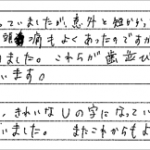 っていましたが、意外と短かっ
頭痛もよくあったのですが
ました。これらが歯並び
います。
、きれいなUの字になってい
いました。 またこれからもよ